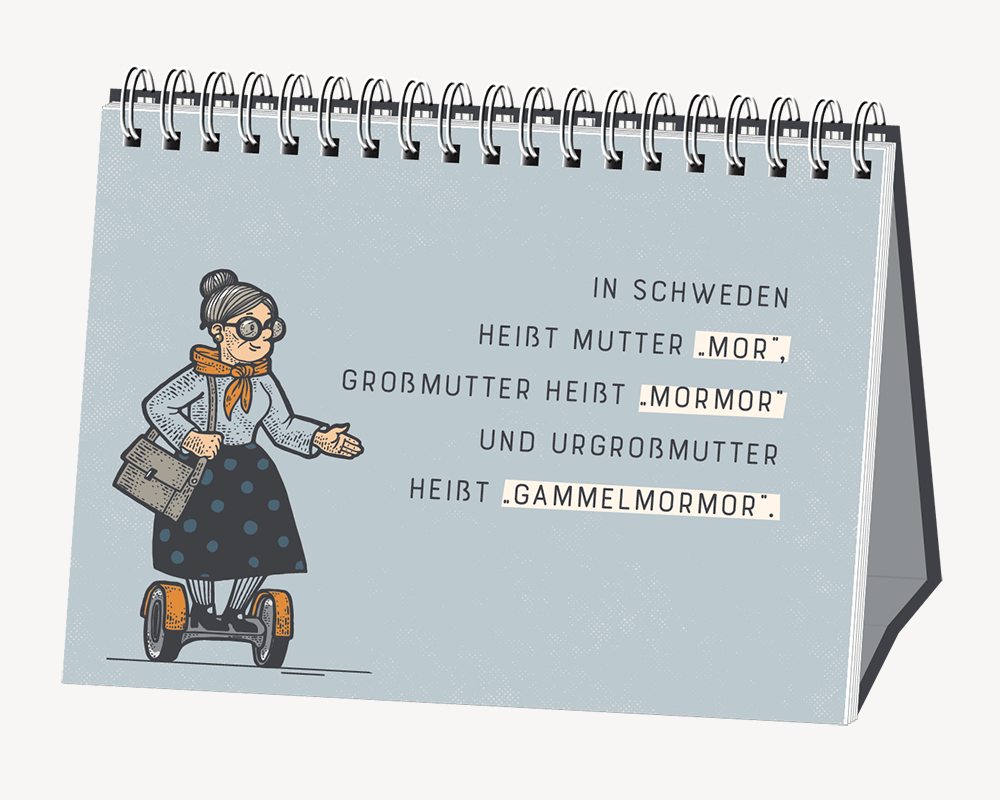 IN SCHWEDEN
HEIẞT MUTTER „MOR“,
GROẞMUTTER HEIẞT „MORMOR“
UND URGROẞMUTTER
HEIẞT „GAMMELMORMOR“.